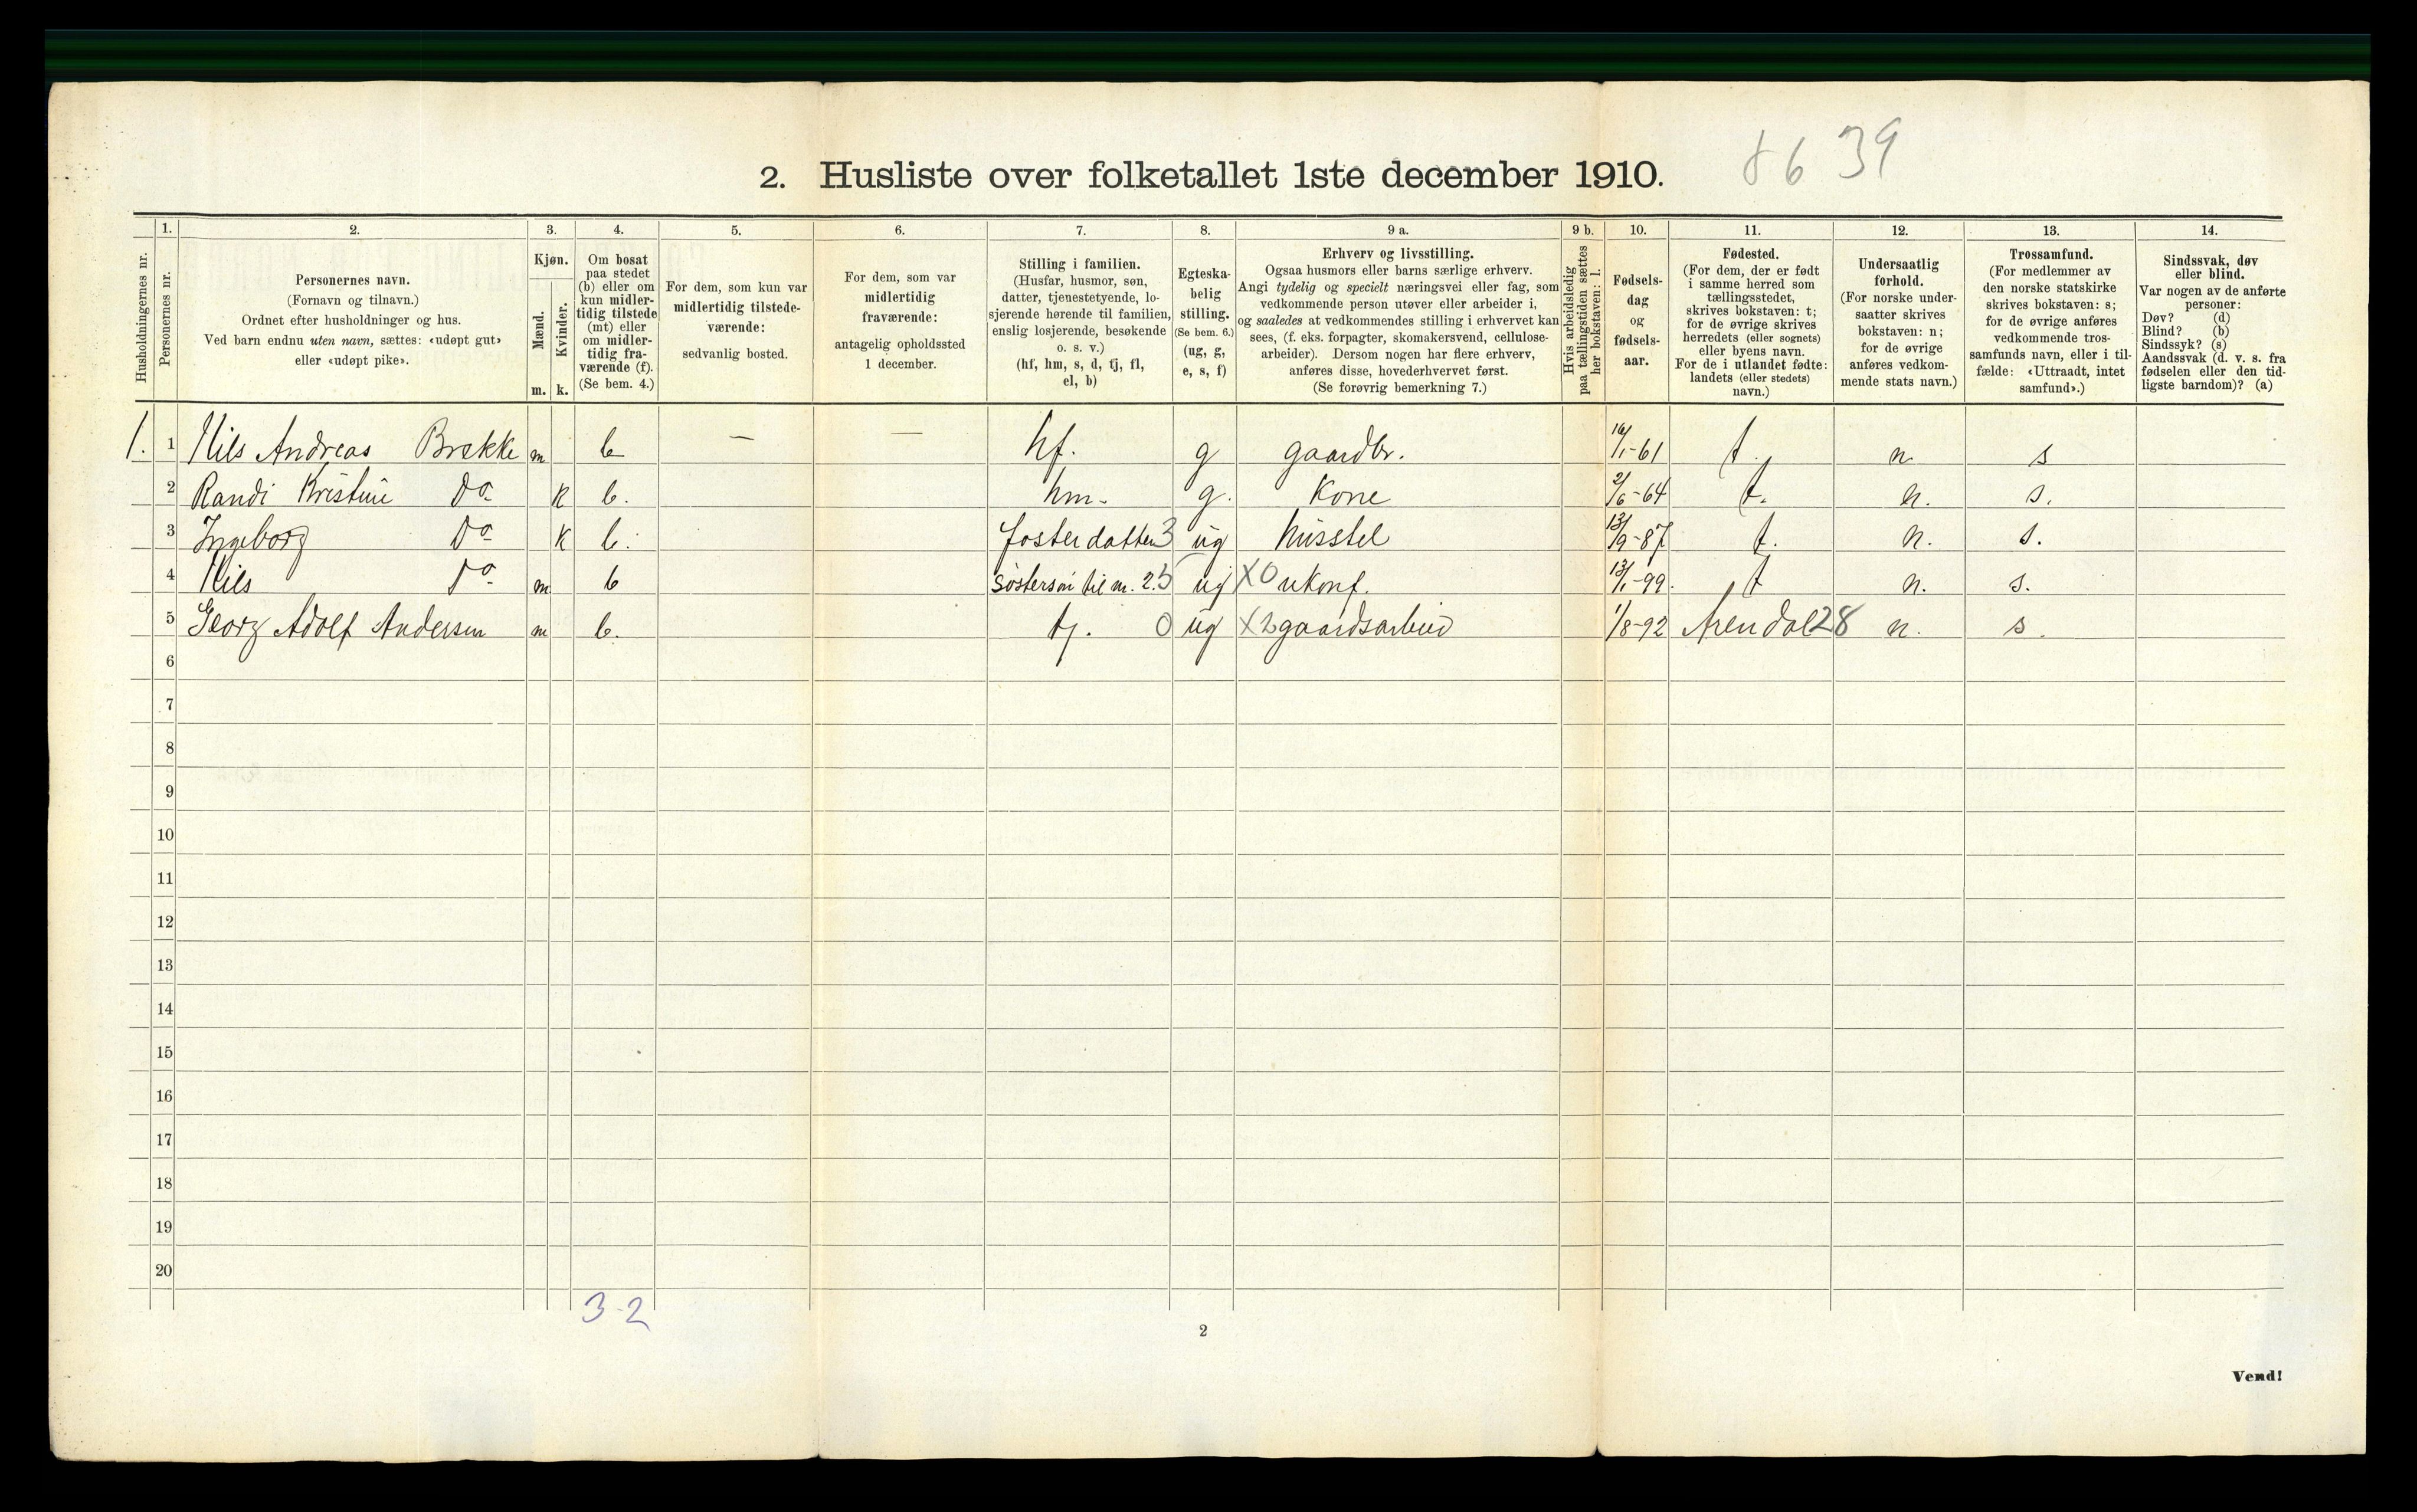 86 39
2. Husliste over folketallet 1ste december 1910.
1. 2. 3. 4. 5. 6. 7. 8. 9 a. 9 b. 10. 11. 12. 13. 14.
Husholdningernes nr.
Personernes nr.
Personernes navn.
(Fornavn og tilnavn.)
Ordnet efter husholdninger og hus.
Ved barn endnu uten navn, sættes: «udøpt gut»
eller «udøpt pike».
Kjøn.
Mænd.
m.
Kvinder.
k.
Om bosat
paa stedet
(b) eller om
kun midler-
tidig tilstede
(mt) eller
om midler-
tidig fra-
værende (f).
(Se bem. 4.)
For dem, som kun var
midlertidig tilstede-
værende:
sedvanlig bosted.
For dem, som var
midlertidig
fraværende:
antagelig opholdssted
1 december.
Stilling i familien.
(Husfar, husmor, søn,
datter, tjenestetyende, lo-
sjerende hørende til familien,
enslig losjerende, besøkende
o. s. v.)
(hf, hm, s, d, tj, fl,
el, b)
Egteska-
belig
stilling.
(Se bem. 6.)
(ug, g,
e, s, f)
Erhverv og livsstilling.
Ogsaa husmors eller barns særlige erhverv.
Angi tydelig og specielt næringsvei eller fag, som
vedkommende person utøver eller arbeider i,
og saaledes at vedkommendes stilling i erhvervet kan
sees, (f. eks. forpagter, skomakersvend, cellulose-
arbeider). Dersom nogen har flere erhverv,
anføres disse, hovederhvervet først.
(Se forøvrig bemerkning 7.)
Hvis arbeidsledig
paa tællingstiden sættes
her bokstaven: l.
Fødsels-
dag
og
fødsels-
aar.
Fødested.
(For dem, der er født
i samme herred som
tællingsstedet,
skrives bokstaven: t;
for de øvrige skrives
herredets (eller sognets)
eller byens navn.
For de i utlandet fødte:
landets (eller stedets)
navn.)
Undersaatlig
forhold.
(For norske under-
saatter skrives
bokstaven: n;
for de øvrige
anføres vedkom-
mende stats navn.)
Trossamfund.
(For medlemmer av
den norske statskirke
skrives bokstaven: s;
for de øvrige anføres
vedkommende tros-
samfunds navn, eller i til-
fælde: «Uttraadt, intet
samfund».)
Sindssvak, døv
eller blind.
Var nogen av de anførte
personer:
Døv? (d)
Blind? (b)
Sindssyk? (s)
Aandssvak (d. v. s. fra
fødselen eller den tid-
ligste barndom)? (a)
1. 1 Nils Andreas Brekke m b — — hf. g gaardbr. 16/1-61 t. n. s
2 Randi Kristine Do k b. hm. g. Kone 2/6-64 t. n. s.
3 Ingeborg Do k b. fosterdatter 3 ug husstel 13/9-87 t. n. s.
4 Nils Do m b søstersøn til nr. 2. 5 ug X0 ukonf. 13/1-99. t n. s.
5 Georg Adolf Andersen m b. tj. 0 ug X2 gaardsarbeid 1/8-92 Arendal 28 n. s.
6
7
8
9
10
11
12
13
14
15
16
17
18
19
20
3-2
2
Vend!